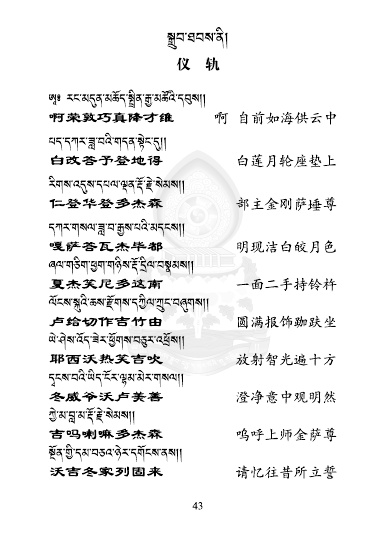 སྒྲུབ་ཐབས་ནི།
仪 轨
ཨཱཿ རང་མདུན་མཆོད་སྤྲིན་རྒྱ་མཚོའི་དབུས།།
啊荣敦巧真降才维 啊 自前如海供云中
པད་དཀར་ཟླ་བའི་གདན་སྟེང་དུ།།
白改答予登地得 白莲月轮座垫上
རིགས་འདུས་དཔལ་ལྡན་རྡོ་རྗེ་སེམས།།
仁登华登多杰森 部主金刚萨埵尊
དཀར་གསལ་ཟླ་བ་རྒྱས་པའི་མདངས།།
嘎萨答瓦杰毕都 明现洁白皎月色
ཞལ་གཅིག་ཕྱག་གཉིས་རྡོར་དྲིལ་བསྣམས།།
夏杰芙尼多这南 一面二手持铃杵
ལོངས་སྐུའི་ཆས་རྫོགས་དཀྱིལ་ཀྲུང་བཞུགས།།
卢给切作吉竹由 圆满报饰跏趺坐
ཡེ་ཤེས་འོད་ཟེར་ཕྱོགས་བཅུར་འཕྲོས།།
耶西沃热芙吉吹 放射智光遍十方
དྭངས་བའི་ཡིད་ངོར་ལྷམ་མེར་གསལ།།
冬威爷沃卢美善 澄净意中观明然
ཀྱེ་མ་བླ་མ་རྡོ་རྗེ་སེམས།།
吉吗喇嘛多杰森 呜呼上师金萨尊
སྔོན་གྱི་དམ་བཅའ་ཉེར་དགོངས་ནས།།
沃吉冬家列固来 请忆往昔所立誓
43